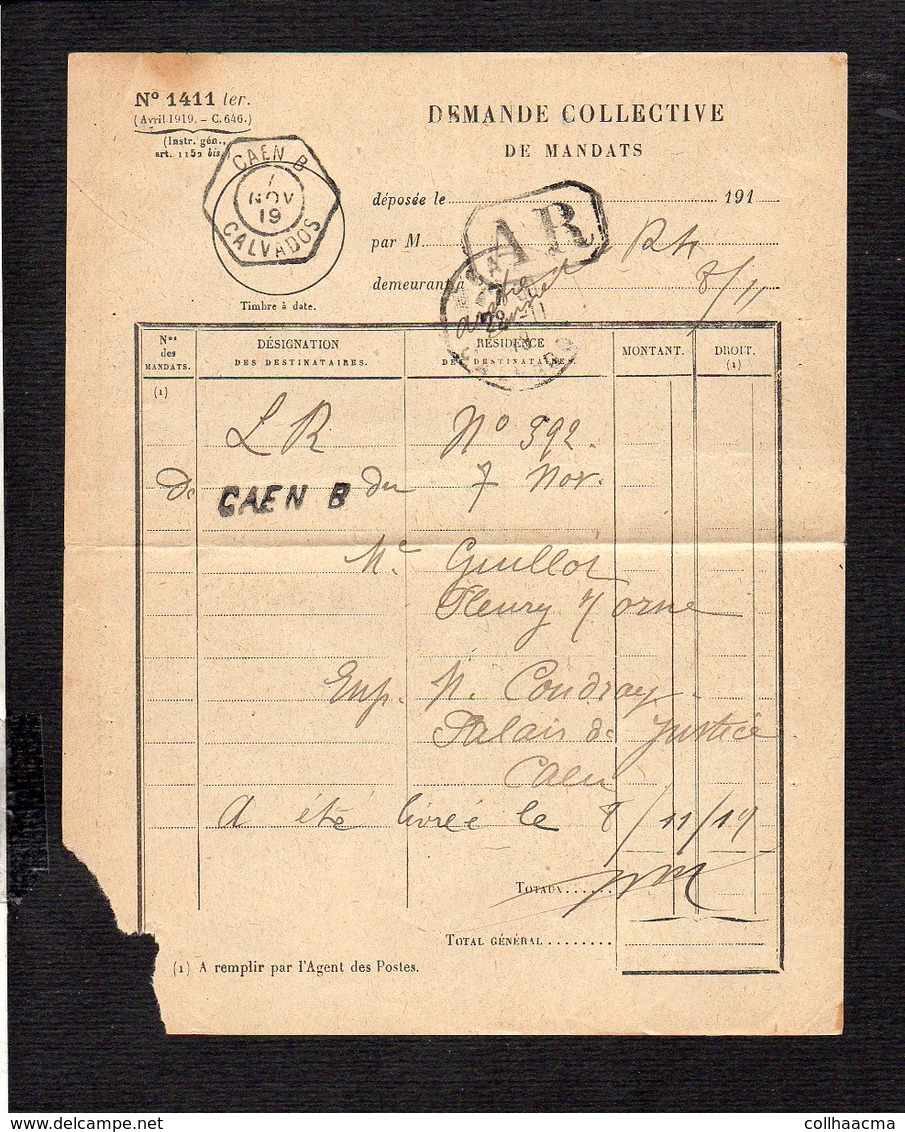 Nº 1411 ter.
(Avril 1919. - C. 646.)
(Instr. gén.,
art. 1152 bis.)
DEMANDE COLLECTIVE
DE MANDATS
CAEN B
7
NOV
19
CALVADOS
Timbre à date.
déposée le 191
par M.
demeurant à
AR
8/11
Nos des MANDATS.
DÉSIGNATION DES DESTINATAIRES.
RÉSIDENCE DES DESTINATAIRES.
MONTANT.
DROIT. (1)
(1)
LR Nº 592.
De CAEN B du 7 Nov.
Guillot
Fleury s/ Orne
Exp. M. Coudray
Palais de Justice
Caen
A été livrée le 8/11/19
TOTAUX......
TOTAL GÉNÉRAL........
(1) A remplir par l'Agent des Postes.
collhaacma